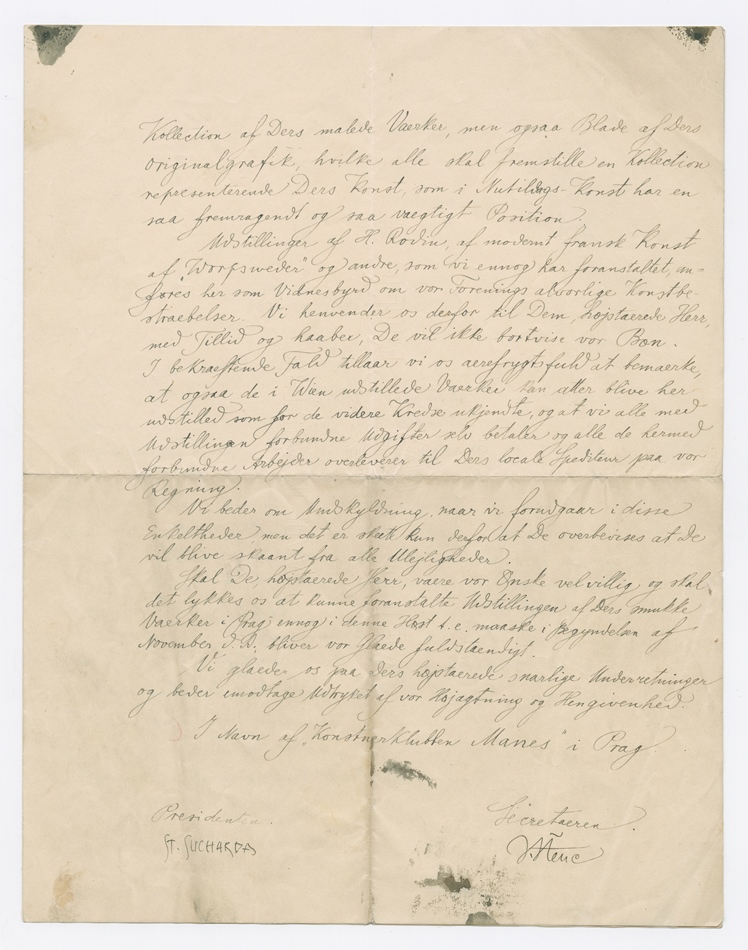 Kollection af Ders malede Vaerker, men ogsaa Blade af Ders
originalgrafik, hvilke alle skal fremstille en Kollection
representerende Ders Konst, som i Nutids-Konst har en
saa fremragendt og saa vaegtigt Position.
Udstillinger af H. Rodin, af modernt fransk Konst
af "Worpsweder" og andre, som vi ennog har foranstaltet, an-
føres her som Vidnesbyrd om vor Forenings alvorlige Konstbe-
straebelser. Vi henvender os derfor til Dem, højstaerede Herr,
med Tillid og haaber, De vil ikke bortvise vor Bøn.
I bekraeftende Fald tillaar vi os aerefrygtsfuld at bemaerke,
at ogsaa de i Wien udstillede Vaerker kan atter blive her
udstilled som for de videre Kredse ukjendte, og at vi alle med
Udstillingen forbundne Udgifter selv betaler og alle de hermed
forbundne Arbejder overleverer til Ders locale Spediteur paa vor
Regning.
Vi beder om Undskyldning, naar vi forudgaar i disse
Enkeltheder men det er skett kun derfor at De overbevises at De
vil blive skaant fra alle Ulejligheder.
Skal De højstaerede Herr, vaere vor Ønske velvillig og skal
det lykkes os at kunne foranstalte Udstillingen af Ders smukke
Vaerker i Prag ennog i denne Høst t. e. maaske i Begyndelsen af
November d. A., bliver vor Glaede fuldstaendigt.
Vi glaeder os paa Ders højstaerede snarlige Underretninger
og beder emodtage Udtryket af vor Højagtning og Hengivenhed.
I Navn af "Konstnerklubben Manes" i Prag.
Presidenten.
Secretaeren.
ST. SUCHARDA